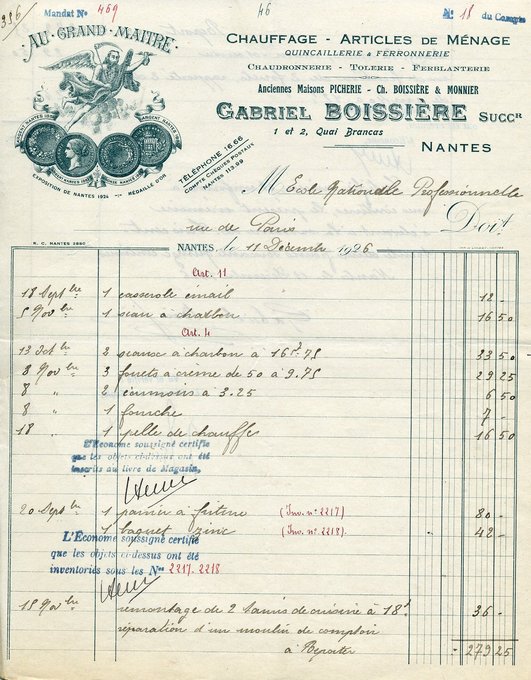 356
Mandat No 469
46
No 18 du Compte
AU · GRAND · MAITRE
CHAUFFAGE - ARTICLES DE MÉNAGE
QUINCAILLERIE & FERRONNERIE
CHAUDRONNERIE - TOLERIE - FERBLANTERIE
Anciennes Maisons PICHERIE - Ch. BOISSIÈRE & MONNIER
GABRIEL BOISSIÈRE SUCCR
1 et 2, Quai Brancas
NANTES
TÉLÉPHONE 16.66
COMPTE CHÈQUES POSTAUX
NANTES 113.99
EXPOSITION DE NANTES 1924 - MÉDAILLE D'OR
M École Nationale Professionnelle
rue de Paris
Doit
R. C. NANTES 2880
NANTES, le 11 Décembre 1926
Art. 11
18 Septbre 1 casserole émail 12 -
5 Novbre 1 seau à charbon 16 50
Art. 4
13 Octbre 2 seaux à charbon à 16f.75 33 50
8 Novbre 3 fouets à crème de 50 à 9.75 29 25
8 " 2 écumoirs à 3.25 6 50
8 " 1 fourche 7 -
18 " 1 pelle de chauffe 16 50
L'Econome soussigné certifie
que les objets ci-dessus ont été
inscrits au livre de Magasin,
20 Septbre 1 panier à friture (Inv. n° 2217) 80 -
1 baquet zinc (Inv. n° 2218) 42 -
L'Économe soussigné certifie
que les objets ci-dessus ont été
inventoriés sous les Nos 2217-2218
15 Novbre remontage de 2 tamis de cuisine à 18f 36 -
réparation d'un moulin de comptoir
à Reporter 279 25